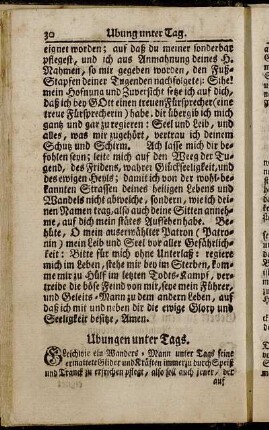 30 Ubung unter Tag.
eignet worden; auf daß du meiner sonderbar
pflegest, und ich aus Anmahnung deines H.
Nahmen, so mir gegeben worden, den Fuß-
Stapfen deiner Tugenden nachfolgete: Sihe!
mein Hofnung und Zuversicht setze ich auf dich,
daß ich bey GOtt einen treuen Fürsprecher (eine
treue Fürsprecherin) habe. dir übergib ich mich
gantz und gar zu regieren: Seel und Leib, und
alles, was mir zugehört, vertrau ich deinem
Schutz und Schirm. Ach lasse mich dir be-
fohlen seyn; leite mich auf den Weeg der Tu-
gend, des Fridens, wahrer Glückseeligkeit, und
des ewigen Heyls; damit ich von der wohl be-
kannten Strassen deines heiligen Lebens und
Wandels nicht abweiche, sondern, wie ich dei-
nen Namen trag, also auch deine Sitten anneh-
me, auf dich mein stätes Aufsehen habe. Be-
hüte, O mein auserwählter Patron (Patro-
nin) mein Leib und Seel vor aller Gefährlich-
keit: Bitte für mich ohne Unterlaß: regiere
mich im Leben, stehe mir bey im Sterben, kom-
me mir zu Hülf im letzten Todts-Kampf, ver-
treibe die böse Feind von mir, seye mein Führer,
und Geleits-Mann zu dem andern Leben, auf
daß ich mit und neben dir die ewige Glory und
Seeligkeit besitze, Amen.
Ubungen unter Tags.
GLeichwie ein Wanders-Mann unter Tags seine
ermattete Glider und Kräfften immerzu durch Speiß
und Tranck zu erfrischen pflegt, also soll auch jener, der
auf